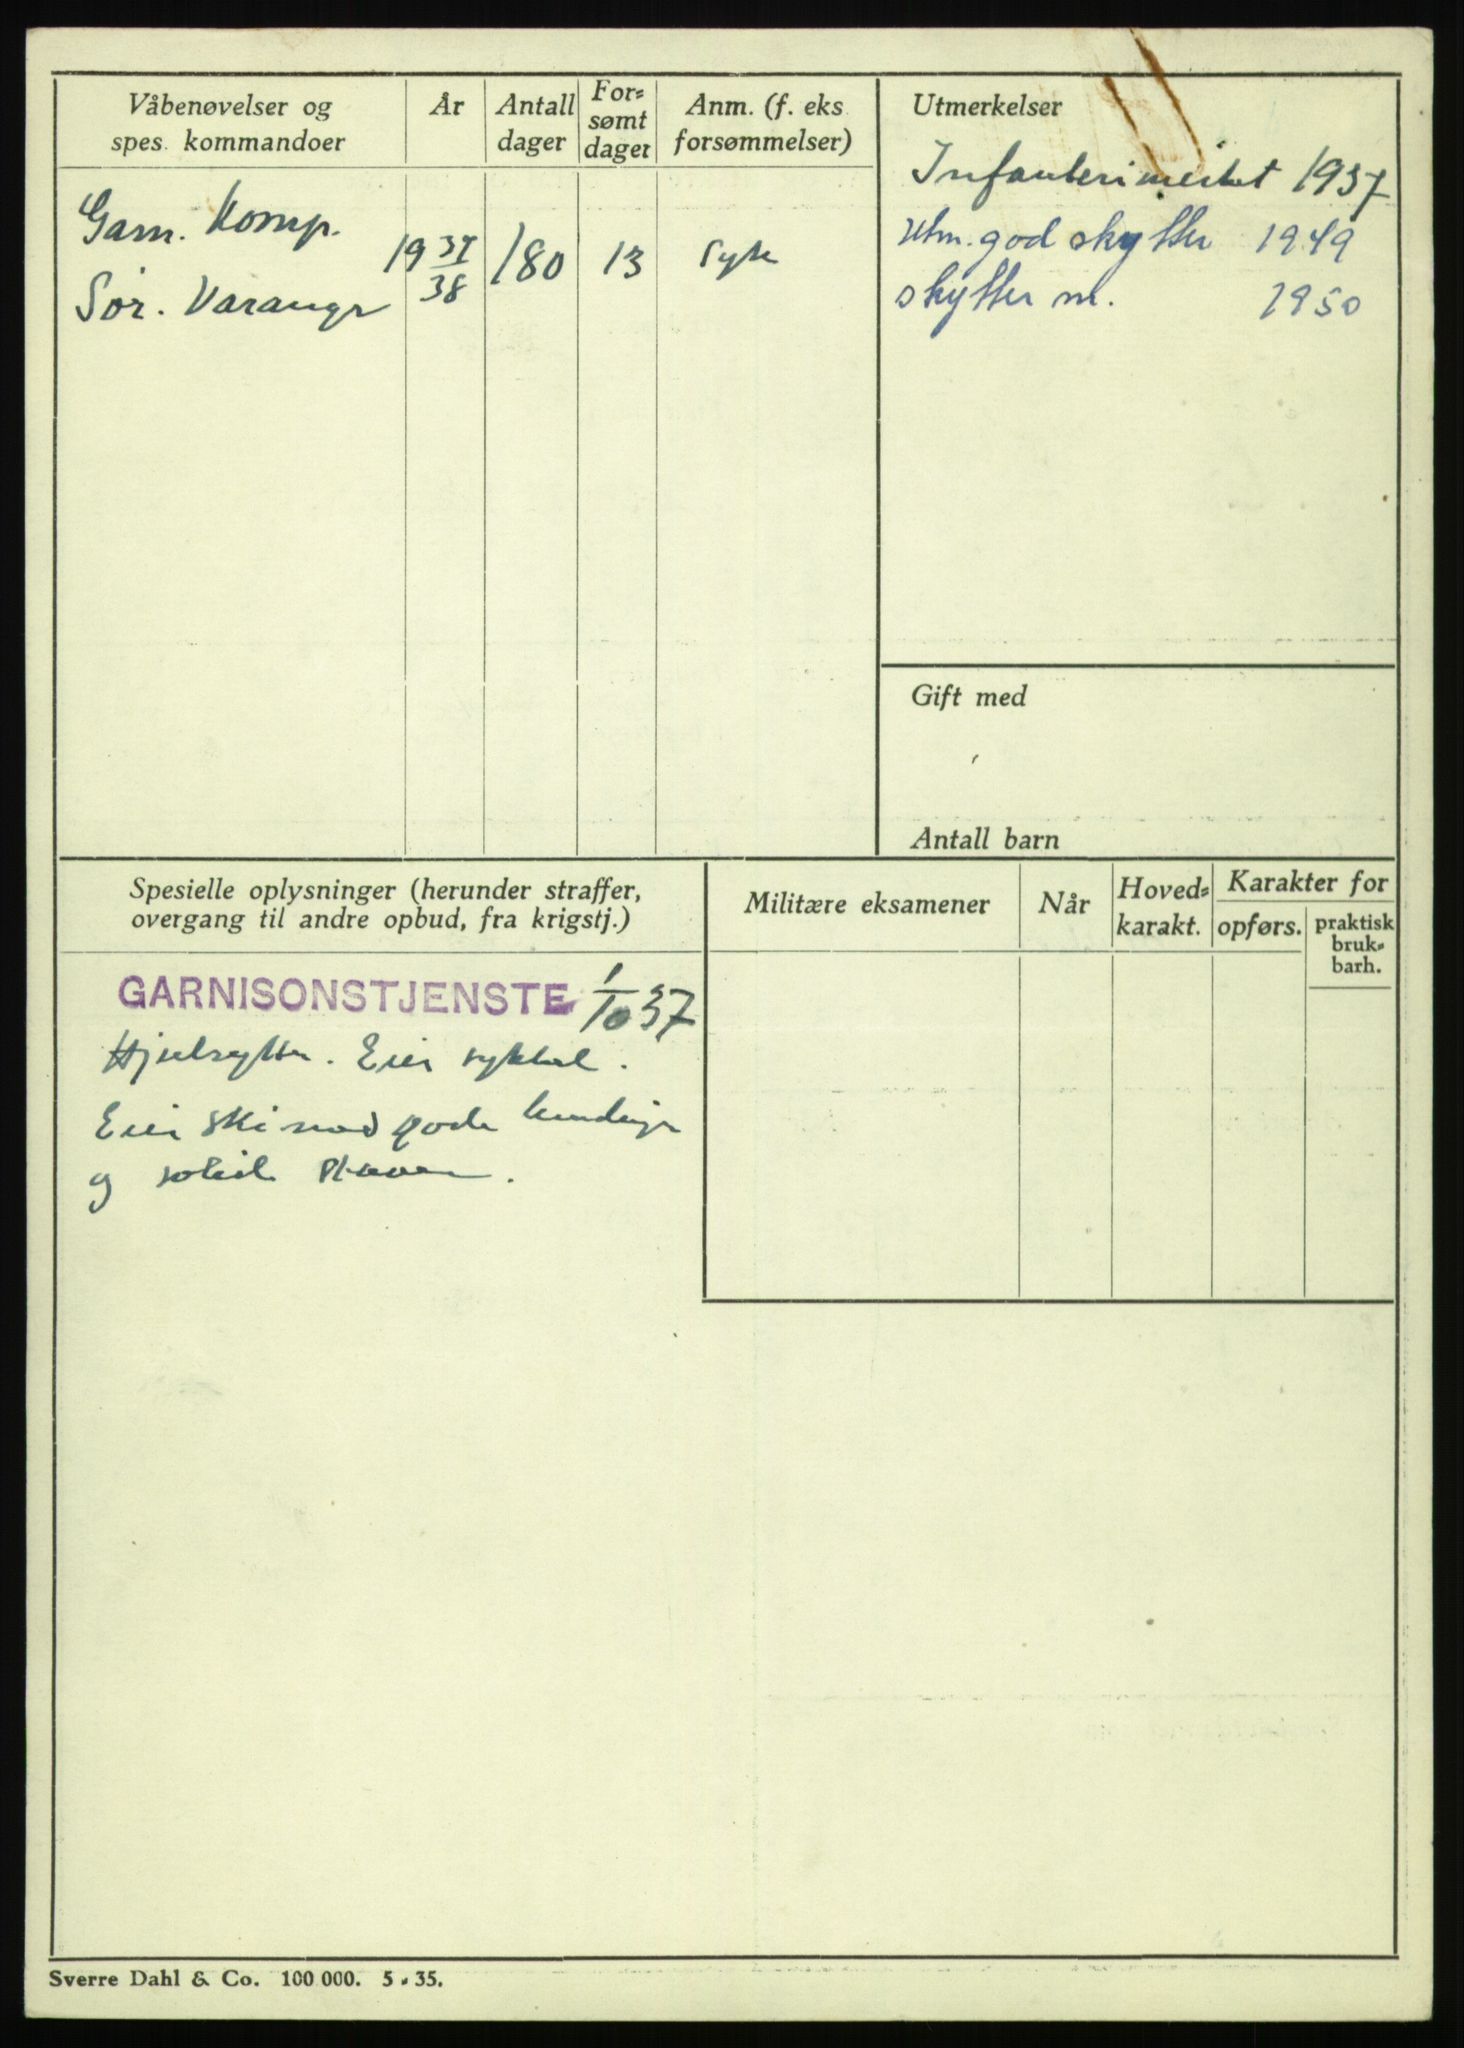 Våbenøvelser og
spes. kommandoer
År
Antall
dager
For-
sømt
dager
Anm. (f. eks
forsømmelser)
Utmerkelser
Garn. Komp.
Sør. Varanger
19 37/38
180
13
syk
Infanterimerket 1937
Utm. god skytter 1949
skytter m. 1950
Gift med
Antall barn
Spesielle oplysninger (herunder straffer,
overgang til andre opbud, fra krigstj.)
Militære eksamener
Når
Hoved-
karakt.
Karakter for
opførs.
praktisk
bruk-
barh.
GARNISONSTJENSTE 1/10 37
Hjulrytter. Eier sykkel.
Eier ski med gode bindinger
og solide staver.
Sverre Dahl & Co. 100 000. 5 - 35.